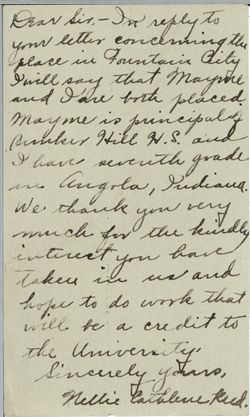 Dear Sir:- In reply to
your letter concerning the
place in Fountain City
I will say that Mayme
and I are both placed
Mayme is principal of
Bunker Hill H.S. and
I have seventh grade
in Angola, Indiana.
We thank you very
much for the kindly
interest you have
taken in us and
hope to do work that
will be a credit to
the University.
Sincerely yours,
Nellie